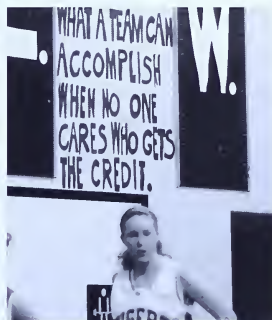 WHAT A TEAM CAN
ACCOMPLISH
WHEN NO ONE
CARES WHO GETS
THE CREDIT.
W.